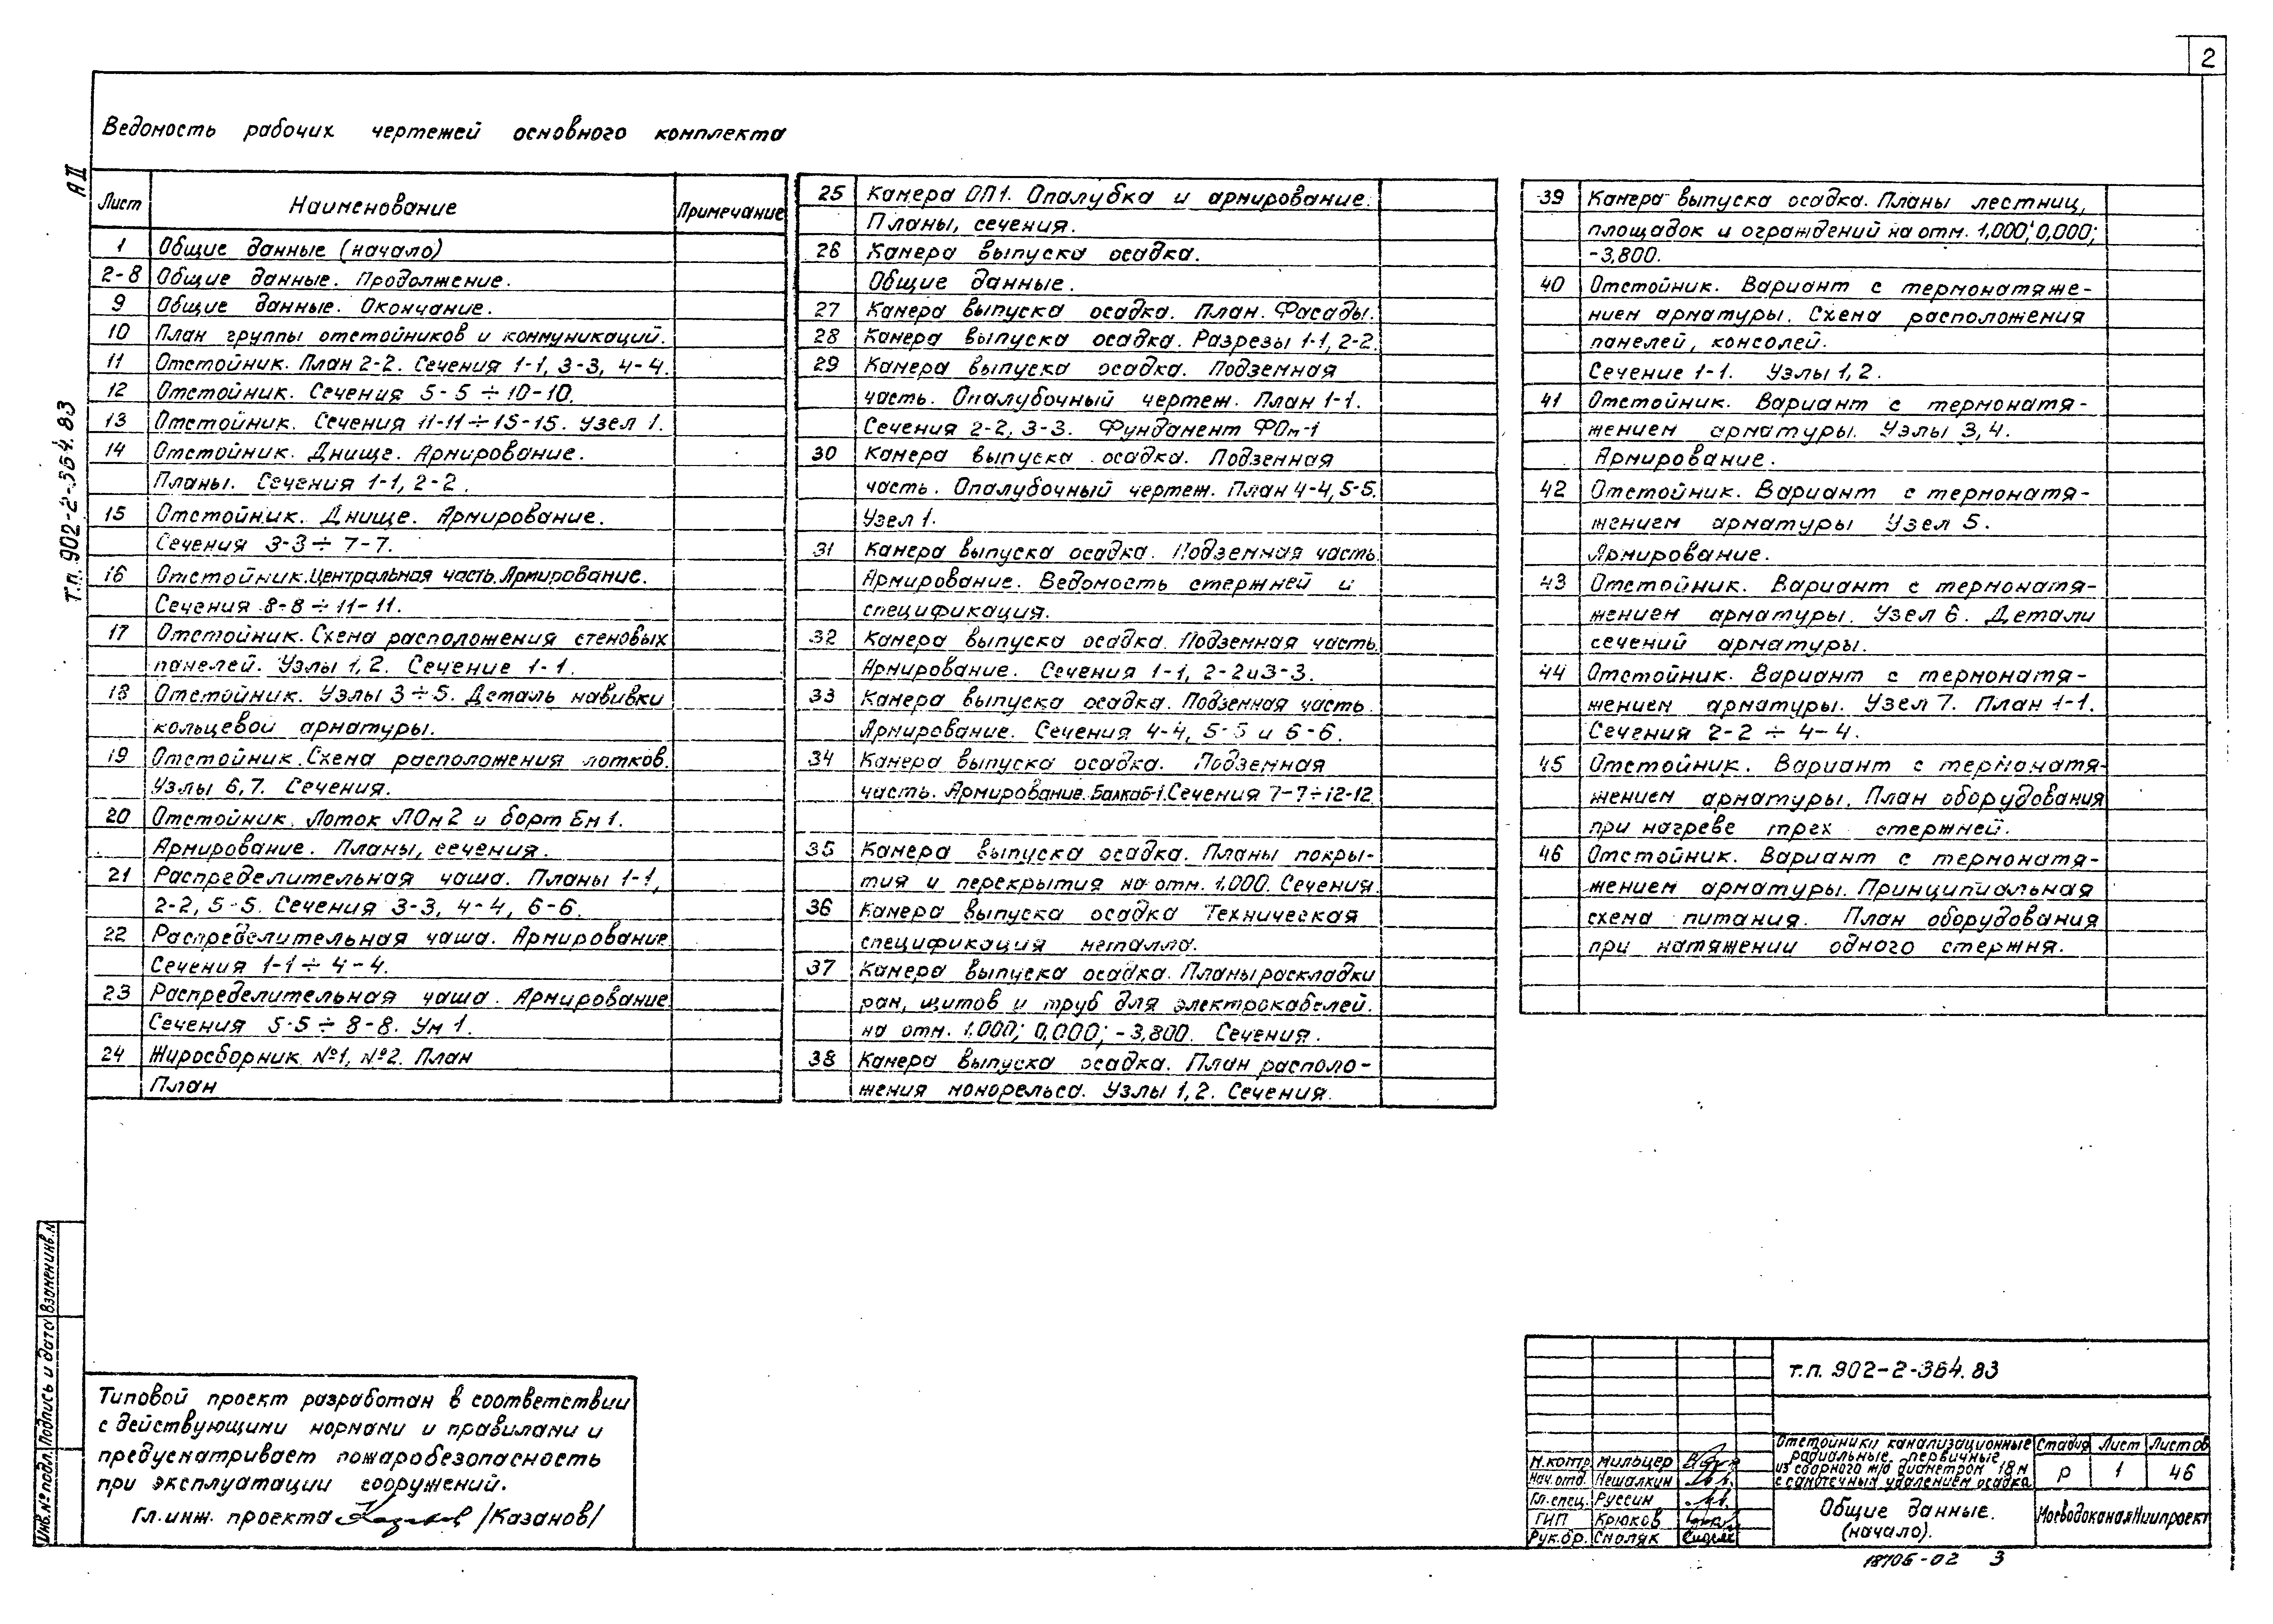 2
Ведомость рабочих чертежей основного комплекта
А II
Т.п. 902-2-364.83
Лист Наименование Примечание
1 Общие данные (начало)
2-8 Общие данные. Продолжение.
9 Общие данные. Окончание.
10 План группы отстойников и коммуникаций.
11 Отстойник. План 2-2. Сечения 1-1, 3-3, 4-4.
12 Отстойник. Сечения 5-5 ÷ 10-10.
13 Отстойник. Сечения 11-11 ÷ 15-15. Узел 1.
14 Отстойник. Днище. Армирование.
Планы. Сечения 1-1, 2-2.
15 Отстойник. Днище. Армирование.
Сечения 3-3 ÷ 7-7.
16 Отстойник. Центральная часть. Армирование.
Сечения 8-8 ÷ 11-11.
17 Отстойник. Схема расположения стеновых
панелей. Узлы 1, 2. Сечение 1-1.
18 Отстойник. Узлы 3 ÷ 5. Деталь навивки
кольцевой арматуры.
19 Отстойник. Схема расположения лотков.
Узлы 6, 7. Сечения.
20 Отстойник. Лоток ЛОм2 и борт Бм1.
Армирование. Планы, сечения.
21 Распределительная чаша. Планы 1-1,
2-2, 5-5. Сечения 3-3, 4-4, 6-6.
22 Распределительная чаша. Армирование
Сечения 1-1 ÷ 4-4.
23 Распределительная чаша. Армирование
Сечения 5-5 ÷ 8-8. Ум 1.
24 Жиросборник №1, №2. План
План
25 Камера ОП1. Опалубка и армирование.
Планы, сечения.
26 Камера выпуска осадка.
Общие данные.
27 Камера выпуска осадка. План. Фасады.
28 Камера выпуска осадка. Разрезы 1-1, 2-2.
29 Камера выпуска осадка. Подземная
часть. Опалубочный чертеж. План 1-1.
Сечения 2-2, 3-3. Фундамент ФОм-1
30 Камера выпуска осадка. Подземная
часть. Опалубочный чертеж. План 4-4, 5-5.
Узел 1.
31 Камера выпуска осадка. Подземная часть
Армирование. Ведомость стержней и
спецификация.
32 Камера выпуска осадка. Подземная часть.
Армирование. Сечения 1-1, 2-2 и 3-3.
33 Камера выпуска осадка. Подземная часть.
Армирование. Сечения 4-4, 5-5 и 6-6.
34 Камера выпуска осадка. Подземная
часть. Армирование. Балка Б-1. Сечения 7-7 ÷ 12-12.
35 Камера выпуска осадка. Планы покры-
тия и перекрытия на отм. 1.000. Сечения.
36 Камера выпуска осадка Техническая
спецификация металла.
37 Камера выпуска осадка. Планы раскладки
рам, щитов и труб для электрокабелей.
на отм. 1.000; 0,000; -3,800. Сечения.
38 Камера выпуска осадка. План располо-
жения монорельса. Узлы 1, 2. Сечения.
39 Камера выпуска осадка. Планы лестниц,
площадок и ограждений на отм. 1,000; 0,000;
-3,800.
40 Отстойник. Вариант с термонатяже-
нием арматуры. Схема расположения
панелей, консолей.
Сечение 1-1. Узлы 1, 2.
41 Отстойник. Вариант с термонатя-
жением арматуры. Узлы 3, 4.
Армирование.
42 Отстойник. Вариант с термонатя-
жением арматуры Узел 5.
Армирование.
43 Отстойник. Вариант с термонатя-
жением арматуры. Узел 6. Детали
сечений арматуры.
44 Отстойник. Вариант с термонатя-
жением арматуры. Узел 7. План 1-1.
Сечения 2-2 ÷ 4-4.
45 Отстойник. Вариант с термонатя-
жением арматуры. План оборудования
при нагреве трех стержней.
46 Отстойник. Вариант с термонатя-
жением арматуры. Принципиальная
схема питания. План оборудования
при натяжении одного стержня.
Инв. № подл. Подпись и дата Взамен инв. №
Типовой проект разработан в соответствии
с действующими нормами и правилами и
предусматривает пожаробезопасность
при эксплуатации сооружений.
Гл. инж. проекта /Казанов/
т.п. 902-2-364.83
Н. контр. Мильцер
Нач. отд. Мешалкин
Гл. спец. Руссин
ГИП Крюков
Рук. бр. Смоляк
Отстойники канализационные
радиальные первичные
из сборного ж/б диаметром 18 м
с самотечным удалением осадка
Стадия Лист Листов
Р 1 46
Общие данные.
(начало).
МосводоканалНиипроект
18706-02 3